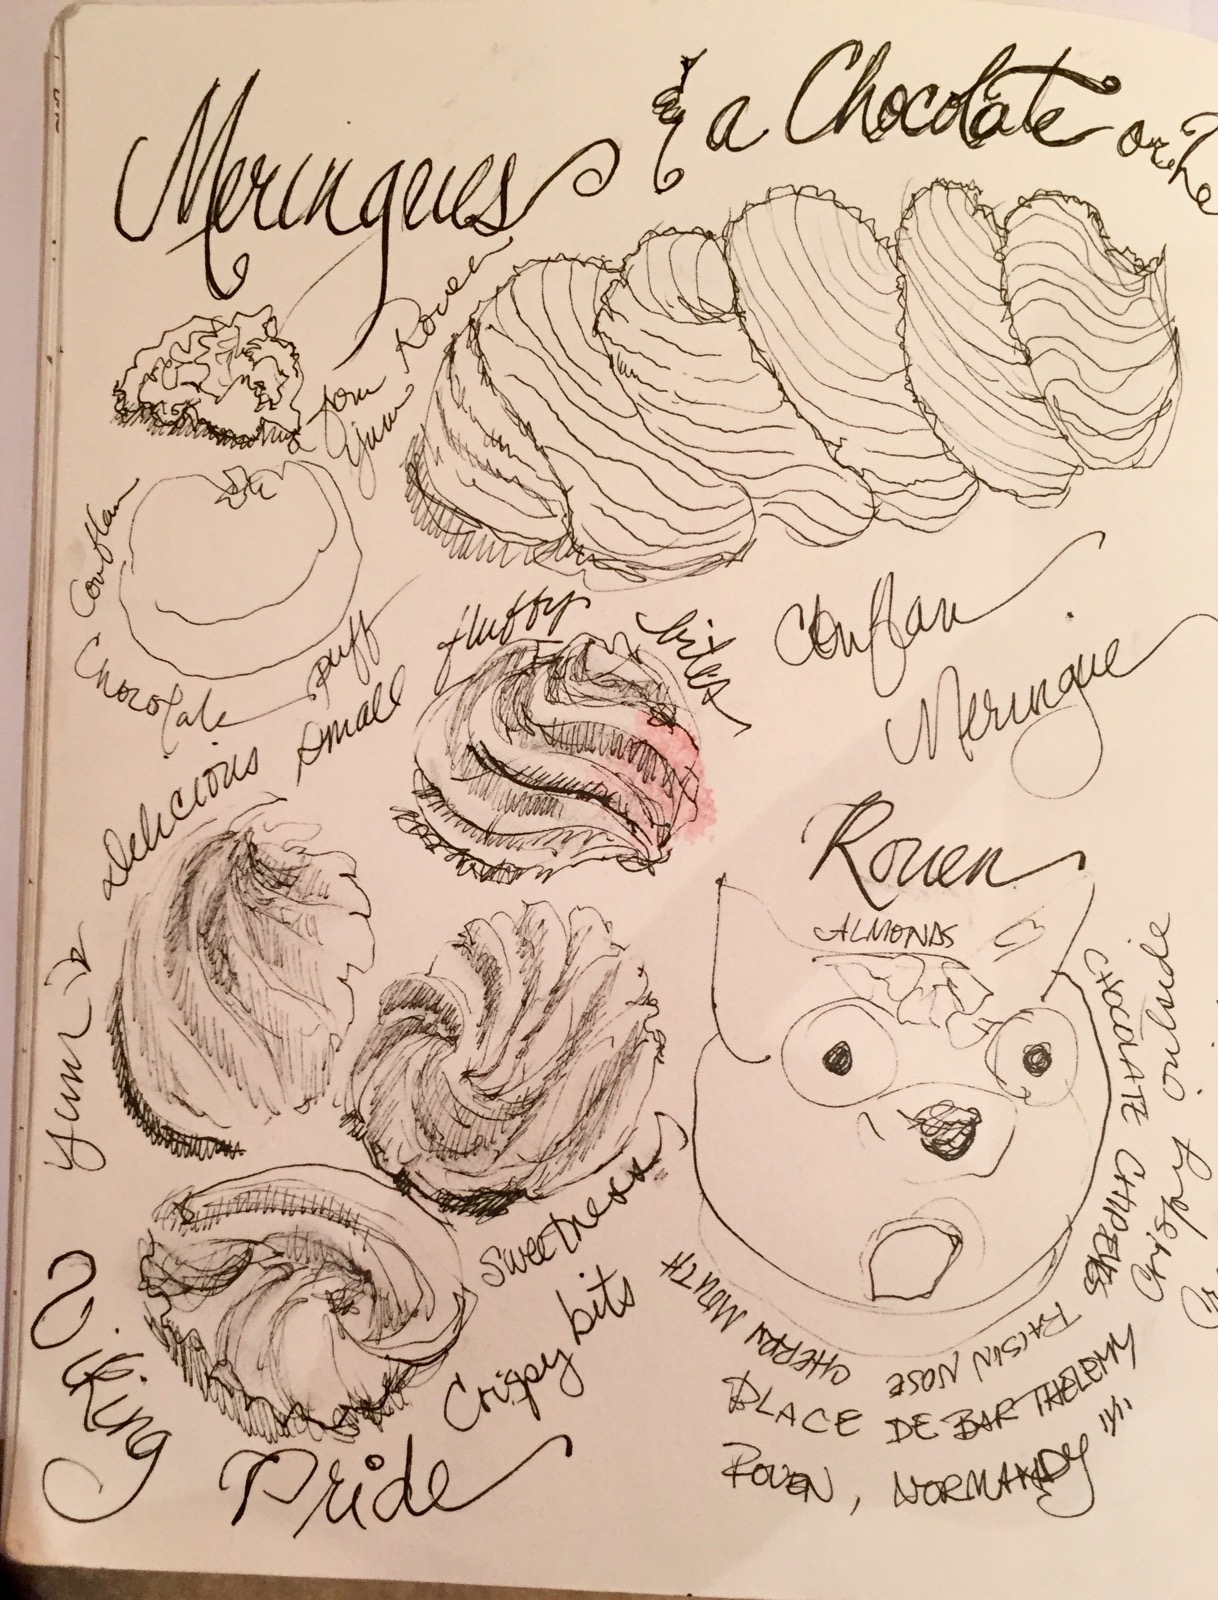 Meringues
& a Chocolate or
from Rouen
yum
Conflan
Chocolate puff
yum
delicious small fluffy bites
Conflan
Meringue
Rouen
ALMONDS
CHOCOLATE
Crispy outside
RAISIN NOSE
CHERRY MOUTH
Sweetness
Crispy bits
Viking
Pride
PLACE DE BARTHELEMY
ROUEN, NORMANDY